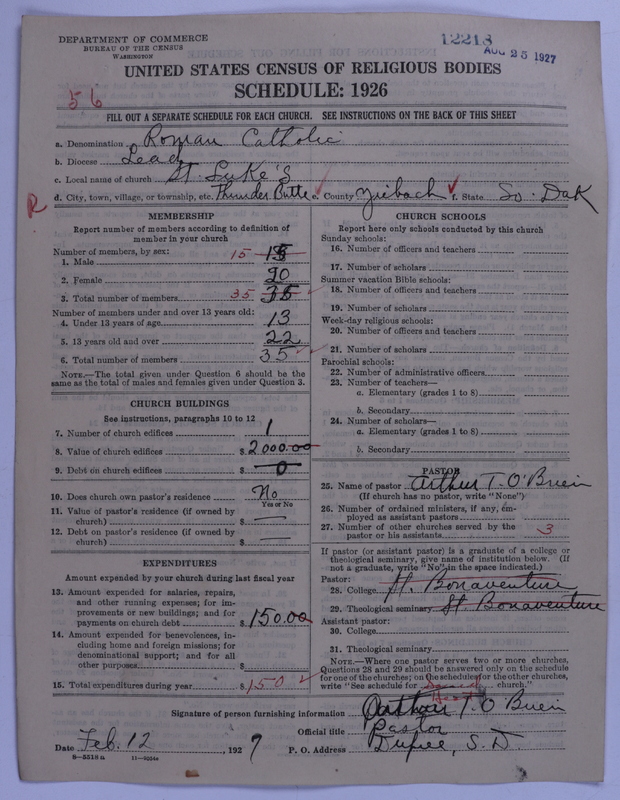 DEPARTMENT OF COMMERCE
BUREAU OF THE CENSUS
WASHINGTON
12218
AUG 25 1927
UNITED STATES CENSUS OF RELIGIOUS BODIES
SCHEDULE: 1926
56
FILL OUT A SEPARATE SCHEDULE FOR EACH CHURCH. SEE INSTRUCTIONS ON THE BACK OF THIS SHEET
a. Denomination Roman Catholic
b. Diocese Lead
c. Local name of church St. Luke's
R d. City, town, village, or township, etc. Thunder Butte e. County Ziebach f. State So. Dak
MEMBERSHIP
Report number of members according to definition of
member in your church
Number of members, by sex:
1. Male 15 15
2. Female 20
3. Total number of members 35 35
Number of members under and over 13 years old:
4. Under 13 years of age 13
5. 13 years old and over 22
6. Total number of members 35
NOTE.—The total given under Question 6 should be the
same as the total of males and females given under Question 3.
CHURCH BUILDINGS
See instructions, paragraphs 10 to 12
7. Number of church edifices 1
8. Value of church edifices $ 2000.00
9. Debt on church edifices $ 0
10. Does church own pastor's residence No
Yes or No
11. Value of pastor's residence (if owned by
church) $ —
12. Debt on pastor's residence (if owned by
church) $ —
EXPENDITURES
Amount expended by your church during last fiscal year
13. Amount expended for salaries, repairs,
and other running expenses; for im-
provements or new buildings; and for
payments on church debt $ 150.00
14. Amount expended for benevolences, in-
cluding home and foreign missions; for
denominational support; and for all
other purposes $
15. Total expenditures during year $ 150
CHURCH SCHOOLS
Report here only schools conducted by this church
Sunday schools:
16. Number of officers and teachers
17. Number of scholars
Summer vacation Bible schools:
18. Number of officers and teachers
19. Number of scholars
Week-day religious schools:
20. Number of officers and teachers
21. Number of scholars
Parochial schools:
22. Number of administrative officers
23. Number of teachers—
a. Elementary (grades 1 to 8)
b. Secondary
24. Number of scholars—
a. Elementary (grades 1 to 8)
b. Secondary
PASTOR
25. Name of pastor Arthur T. O'Brien
(If church has no pastor, write "None")
26. Number of ordained ministers, if any, em-
ployed as assistant pastors
27. Number of other churches served by the
pastor or his assistants 3
If pastor (or assistant pastor) is a graduate of a college or
theological seminary, give name of institution below. (If
not a graduate, write "No" in the space indicated.)
Pastor:
28. College St. Bonaventure
29. Theological seminary St. Bonaventure
Assistant pastor:
30. College
31. Theological seminary
NOTE.—Where one pastor serves two or more churches,
Questions 28 and 29 should be answered only on the schedule
for one of the churches; on the schedules for the other churches,
write "See schedule for church."
Signature of person furnishing information Arthur T. O'Brien
Official title Pastor
Date Feb. 12, 1927 P. O. Address Dupree, S. D.
8—5318a 11—9264a